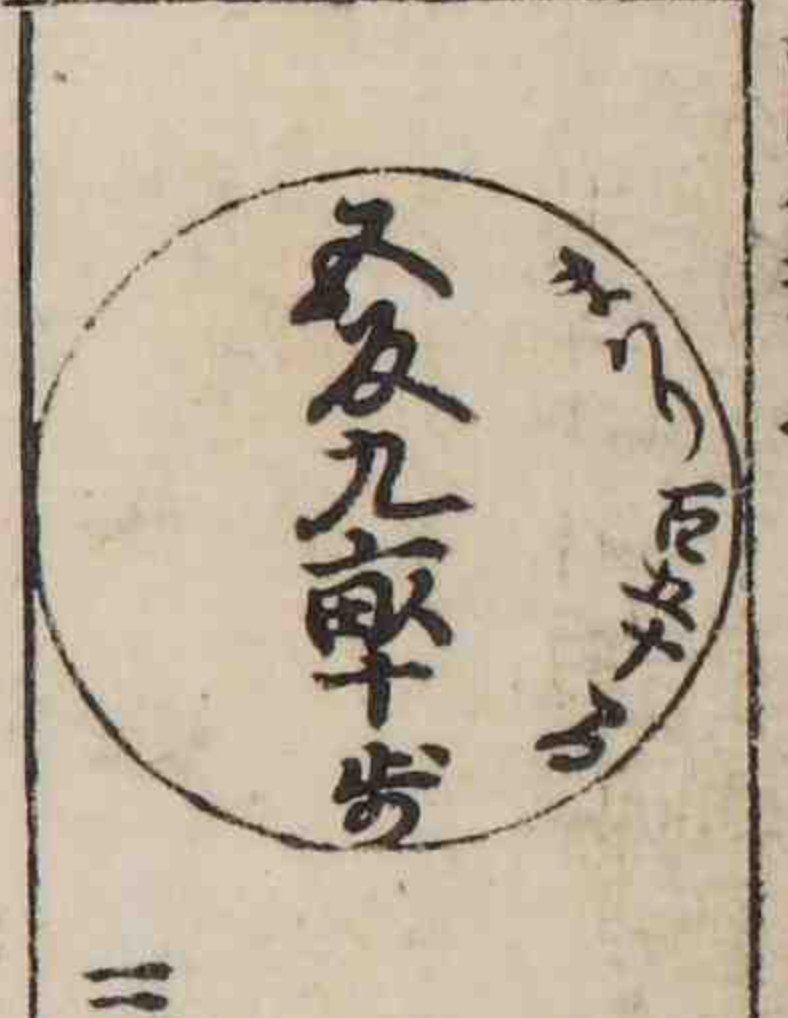 まハり百五十間
五反九畝十歩
二